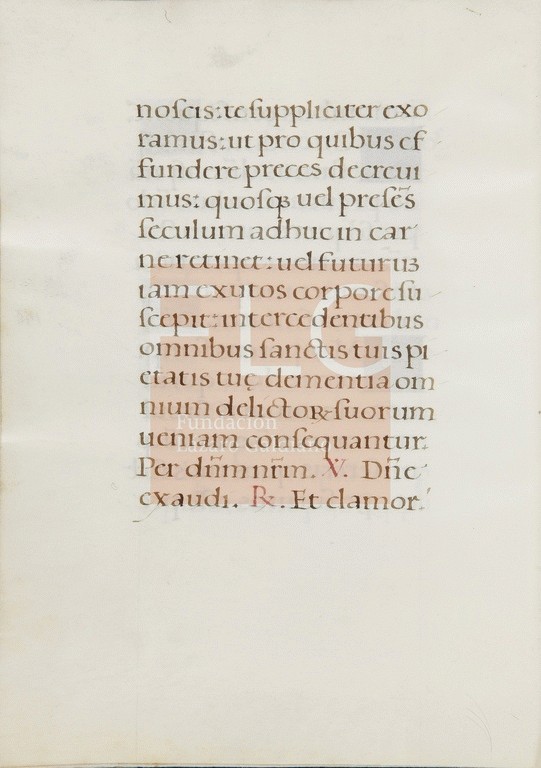 noſcis: te ſuppliciter exo
ramus: ut pro quibus ef
fundere preces decreui
mus: quoſqꝫ uel preſẽs
ſeculum adhuc in car
ne retinet: uel futurũ
iam exutos corpore ſu
ſcepit: intercedentibus
omnibus ſanctis tuis pi
etatis tuę clementia om
nium delictoꝝ ſuorum
ueniam conſequantur.
Per dñm nr̃m. V. Dñe
exaudi. ℞. Et clamor.
FLG
Fundación
Lázaro Galdiano